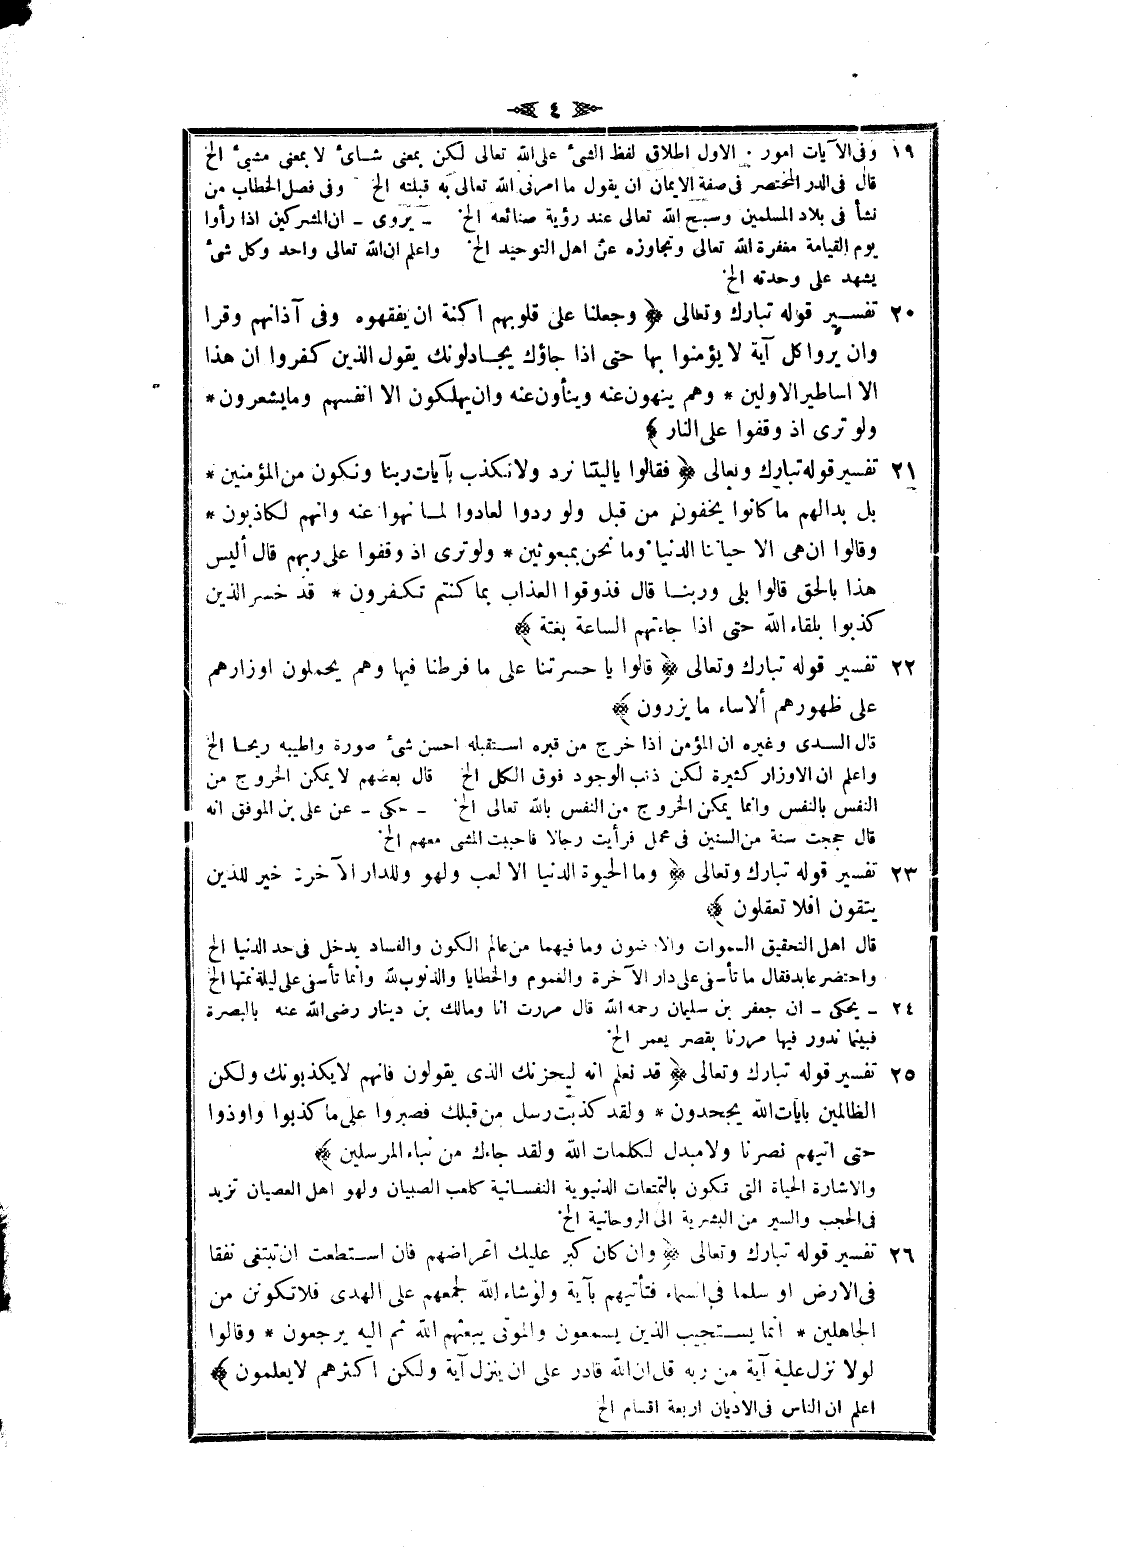 ٤
١٩ وفى الآيات امور ۰ الاول اطلاق لفظ الشئ على الله تعالى لكن بمعنى شائ لا بمعنى مشئ الخ
قال فى الدر المختصر فى صفة الايمان ان يقول ما امرنى الله تعالى به قبلته الخ وفى فصل الخطاب من
نشأ فى بلاد المسلمين وسبح الله تعالى عند رؤية صنائعه الخ ـ يروى ـ ان المشركين اذا رأوا
يوم القيامة مغفرة الله تعالى وتجاوزه عن اهل التوحيد الخ واعلم ان الله تعالى واحد وكل شئ
يشهد على وحدته الخ
٢٠ تفسير قوله تبارك وتعالى ﴿ وجعلنا على قلوبهم اكنة ان يفقهوه وفى آذانهم وقرا
وان يروا كل آية لا يؤمنوا بها حتى اذا جاؤك يجادلونك يقول الذين كفروا ان هذا
الا اساطير الاولين * وهم ينهون عنه وينأون عنه وان يهلكون الا انفسهم وما يشعرون *
ولو ترى اذ وقفوا على النار ﴾
٢١ تفسير قوله تبارك وتعالى ﴿ فقالوا ياليتنا نرد ولا نكذب بآيات ربنا ونكون من المؤمنين *
بل بدالهم ما كانوا يخفون من قبل ولو ردوا لعادوا لما نهوا عنه وانهم لكاذبون *
وقالوا ان هى الا حياتنا الدنيا وما نحن بمبعوثين * ولو ترى اذ وقفوا على ربهم قال أليس
هذا بالحق قالوا بلى وربنا قال فذوقوا العذاب بما كنتم تكفرون * قد خسر الذين
كذبوا بلقاء الله حتى اذا جاءتهم الساعة بغتة ﴾
٢٢ تفسير قوله تبارك وتعالى ﴿ قالوا يا حسرتنا على ما فرطنا فيها وهم يحملون اوزارهم
على ظهورهم ألاساء ما يزرون ﴾
قال السدى وغيره ان المؤمن اذا خرج من قبره استقبله احسن شئ صورة واطيبه ريحا الخ
واعلم ان الاوزار كثيرة لكن ذنب الوجود فوق الكل الخ قال بعضهم لا يمكن الخروج من
النفس بالنفس وانما يمكن الخروج من النفس بالله تعالى الخ ـ حكى ـ عن على بن الموفق انه
قال حججت سنة من السنين فى محمل فرأيت رجالا فاحببت المشى معهم الخ
٢٣ تفسير قوله تبارك وتعالى ﴿ وما الحيوة الدنيا الا لعب ولهو وللدار الآخرة خير للذين
يتقون افلا تعقلون ﴾
قال اهل التحقيق السموات والارضون وما فيهما من عالم الكون والفساد يدخل فى حد الدنيا الخ
واحتضر عابد فقال ما تأسفى على دار الآخرة والغموم والخطايا والذنوب لله وانما تأسفى على ليلة نمتها الخ
٢٤ ـ يحكى ـ ان جعفر بن سليمان رحمه الله قال مررت انا ومالك بن دينار رضى الله عنه بالبصرة
فبينما ندور فيها مررنا بقصر يعمر الخ
٢٥ تفسير قوله تبارك وتعالى ﴿ قد نعلم انه ليحزنك الذى يقولون فانهم لا يكذبونك ولكن
الظالمين بايات الله يجحدون * ولقد كذبت رسل من قبلك فصبروا على ما كذبوا واوذوا
حتى اتيهم نصرنا ولا مبدل لكلمات الله ولقد جاءك من نباء المرسلين ﴾
والاشارة الحياة التى تكون بالتمتعات الدنيوية النفسانية كلعب الصبيان ولهو اهل العصيان تزيد
فى الحجب والسير من البشرية الى الروحانية الخ
٢٦ تفسير قوله تبارك وتعالى ﴿ وان كان كبر عليك اعراضهم فان استطعت ان تبتغى نفقا
فى الارض او سلما فى السماء فتأتيهم بآية ولو شاء الله لجمعهم على الهدى فلا تكونن من
الجاهلين * انما يستجيب الذين يسمعون والموتى يبعثهم الله ثم اليه يرجعون * وقالوا
لولا نزل علية آية من ربه قل ان الله قادر على ان ينزل آية ولكن اكثرهم لا يعلمون ﴾
اعلم ان الناس فى الاديان اربعة اقسام الخ